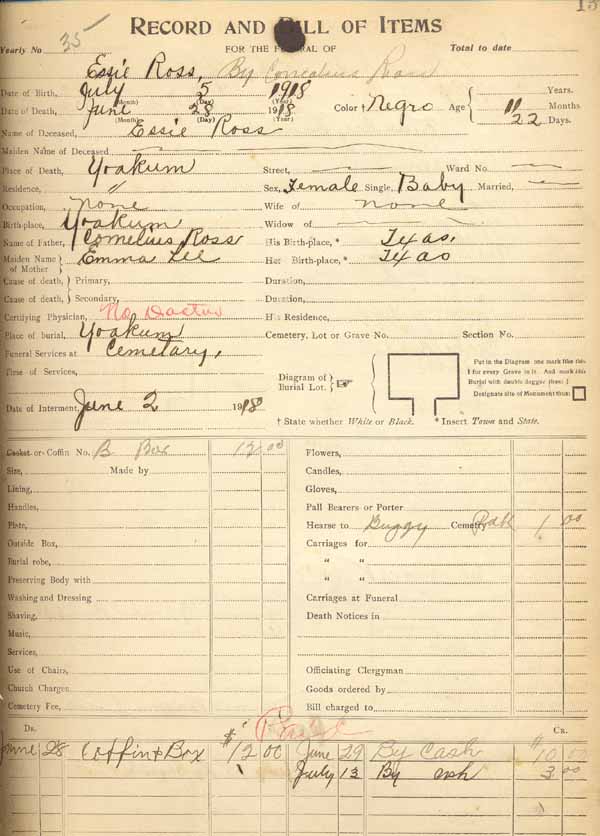 RECORD AND BILL OF ITEMS
Yearly No 35 FOR THE FUNERAL OF Total to date
Essie Ross, By Cornelius Ross
Date of Birth, July 5 1918 Years.
(Month) (Day) (Year)
Date of Death, June 28 1918 Color † Negro Age 11 Months
(Month) (Day) (Year) 22 Days.
Name of Deceased, Essie Ross
Maiden Name of Deceased
Place of Death, Yoakum Street, Ward No.
Residence, " Sex, Female Single, Baby Married,
Occupation, none Wife of none
Birth-place, Yoakum Widow of
Name of Father, Cornelius Ross His Birth-place, * Texas.
Maiden Name of Mother } Emma Lee Her Birth-place, * Texas
Cause of death, } Primary, Duration,
Cause of death, } Secondary, Duration,
Certifying Physician, No Doctor His Residence,
Place of burial, Yoakum Cemetery, Lot or Grave No. Section No.
Funeral Services at Cemetary,
Time of Services,
Diagram of Burial Lot. }
Put in the Diagram one mark like this
† for every Grave in it. And mark this
Burial with double dagger thus: ‡
Designate site of Monument thus:
Date of Interment, June 2 1918
† State whether White or Black. * Insert Town and State.
Casket or Coffin No. B Box 12.00 Flowers,
Size, Made by Candles,
Lining, Gloves,
Handles, Pall Bearers or Porter
Plate, Hearse to Buggy Cemetry 1 00
Outside Box, Carriages for
Burial robe, " "
Preserving Body with " "
Washing and Dressing Carriages at Funeral
Shaving, Death Notices in
Music,
Services,
Use of Chairs, Officiating Clergyman
Church Charges Goods ordered by
Cemetery Fee, Bill charged to
DR. CR.
June 28 Coffin & Box $12 00 June 29 By Cash $10 00
July 13 By cash 3 00